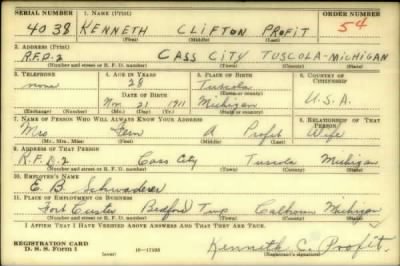 SERIAL NUMBER 1. NAME (Print) ORDER NUMBER
4038 KENNETH CLIFTON PROFIT 54
(First) (Middle) (Last)
2. ADDRESS (Print)
R.F.D-2 CASS CITY TUSCOLA-MICHIGAN
(Number and street or R. F. D. number) (Town) (County) (State)
3. TELEPHONE 4. AGE IN YEARS 5. PLACE OF BIRTH 6. COUNTRY OF CITIZENSHIP
none 28 Tuscola
DATE OF BIRTH (Town or county)
Nov 21 1911 Michigan U.S.A.
(Exchange) (Number) (Mo.) (Day) (Yr.) (State or country)
7. NAME OF PERSON WHO WILL ALWAYS KNOW YOUR ADDRESS 8. RELATIONSHIP OF THAT PERSON
Mrs Fern A Profit Wife
(Mr., Mrs., Miss) (First) (Middle) (Last)
9. ADDRESS OF THAT PERSON
R.F.D.2 Cass City Tuscola Michigan
(Number and street or R. F. D. number) (Town) (County) (State)
10. EMPLOYER'S NAME
E. B. Schwaderer
11. PLACE OF EMPLOYMENT OR BUSINESS
Fort Custer Bedford Twp Calhoun Michigan
(Number and street or R. F. D. number) (Town) (County) (State)
I AFFIRM THAT I HAVE VERIFIED ABOVE ANSWERS AND THAT THEY ARE TRUE.
REGISTRATION CARD
D. S. S. Form 1 (over) 16-17105 Kenneth C. Profit
(Registrant's signature)